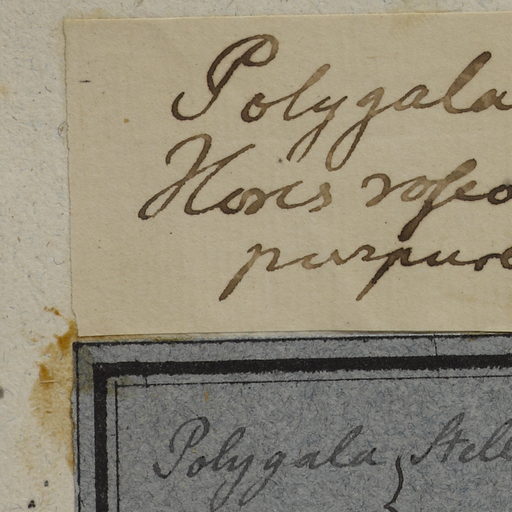 Polygala
Flores roseo
purpure
Polygala Stell